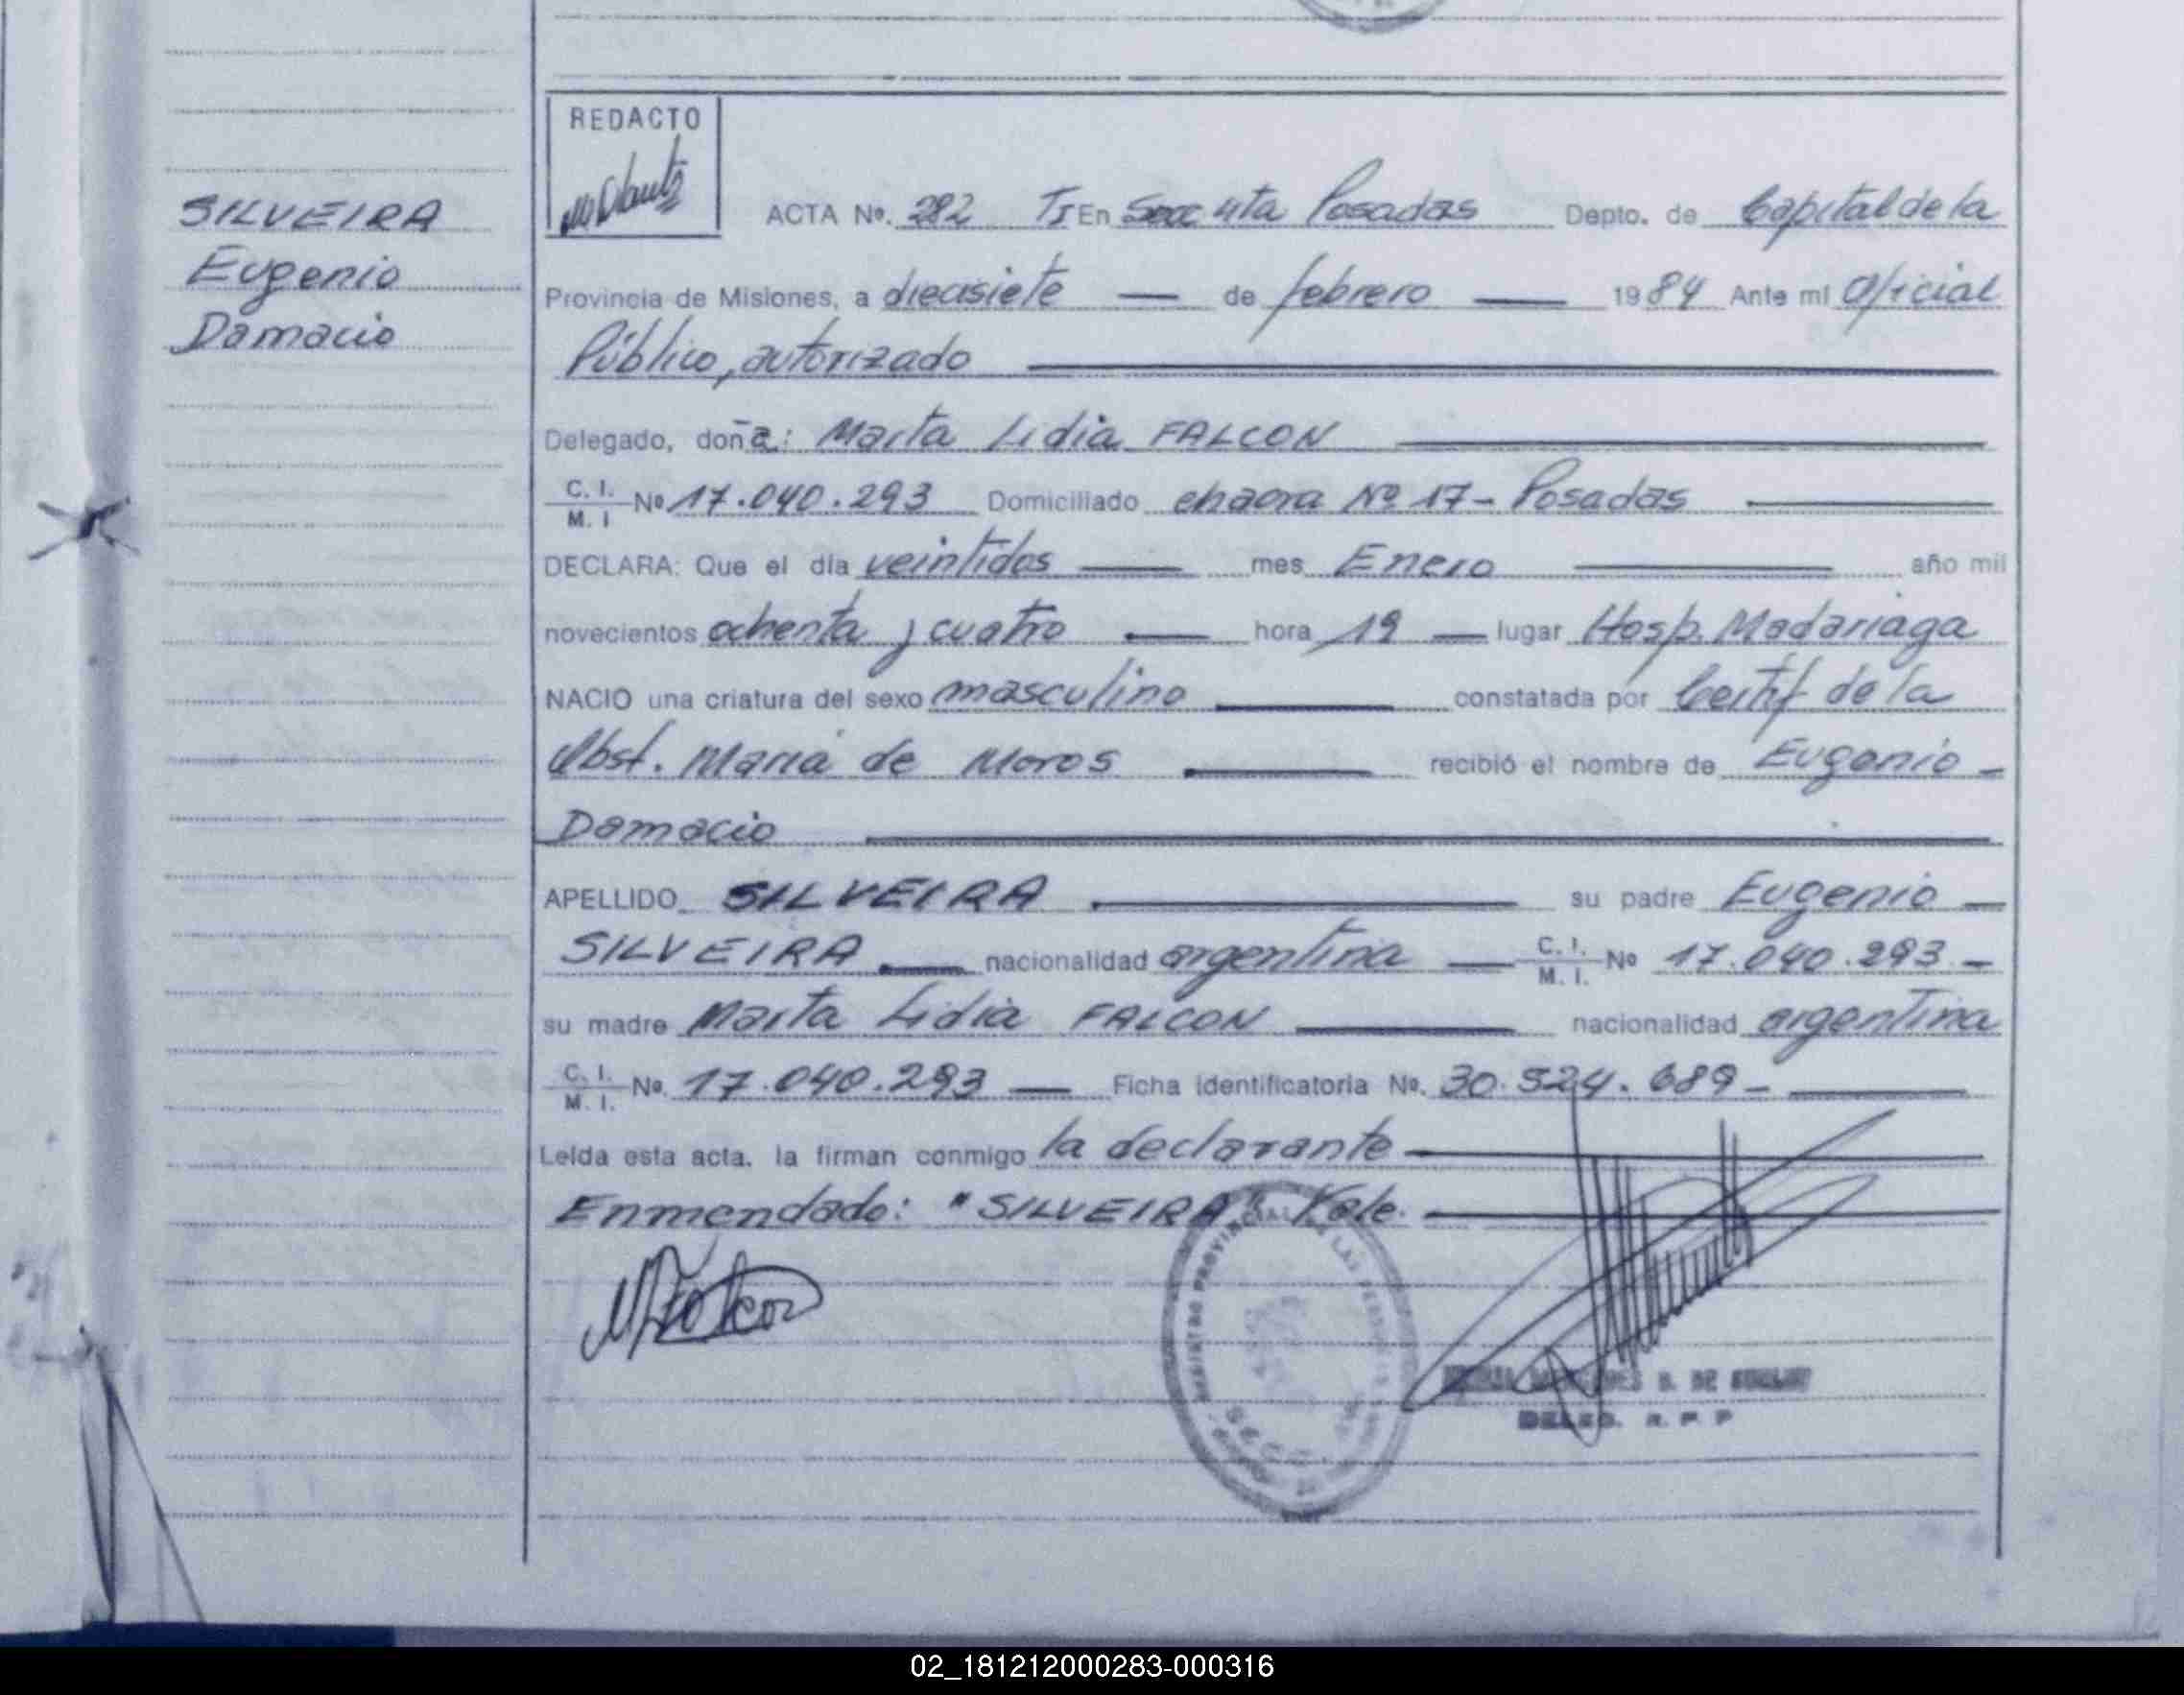 REDACTO
SILVEIRA
Eugenio
Damacio
ACTA Nº. 282 TI En Secc 4ta Posadas Depto. de Capital de la
Provincia de Misiones, a diecisiete — de febrero — 1984 Ante mi Oficial
Público, autorizado
Delegado, doña: Marta Lidia FALCON
C. I. M. I Nº 17.040.293 Domiciliado chacra Nº 17 - Posadas
DECLARA: Que el día veintidos — mes Enero — año mil
novecientos ochenta y cuatro — hora 19 — lugar Hosp. Madariaga
NACIO una criatura del sexo masculino — constatada por Certif de la
Obst. María de Moros — recibió el nombre de Eugenio —
Damacio
APELLIDO SILVEIRA — su padre Eugenio —
SILVEIRA — nacionalidad argentina — C. I. M. I. Nº 17.040.293 -
su madre Marta Lidia FALCON — nacionalidad argentina
C. I. M. I. Nº. 17.040.293 — Ficha identificatoria Nº. 30.524.689 -
Leída esta acta. la firman conmigo la declarante
Enmendado: "SILVEIRA" Vale.
REGISTRO PROVINCIAL DE LAS PERSONAS
DELEG. R. P. P
02_181212000283-000316